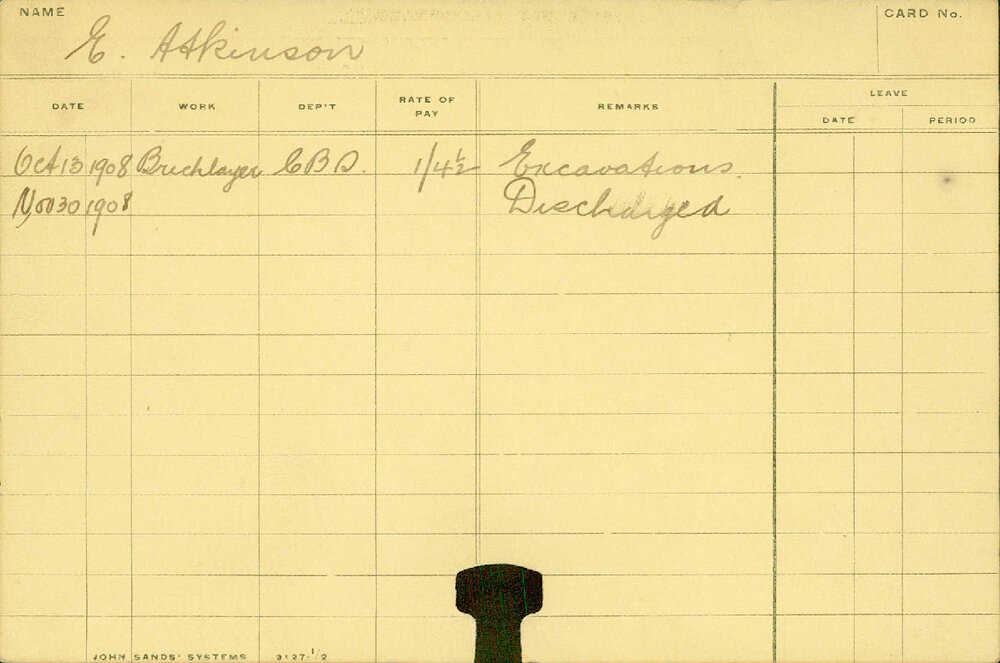 NAME
CARD No.
E. Atkinson
DATE WORK DEP'T RATE OF PAY REMARKS LEAVE
DATE PERIOD
Oct 13 1908 Bricklayer C B D. 1/4½ Excavations.
Nov 30 1908 Discharged
JOHN SANDS' SYSTEMS 3127-1/2